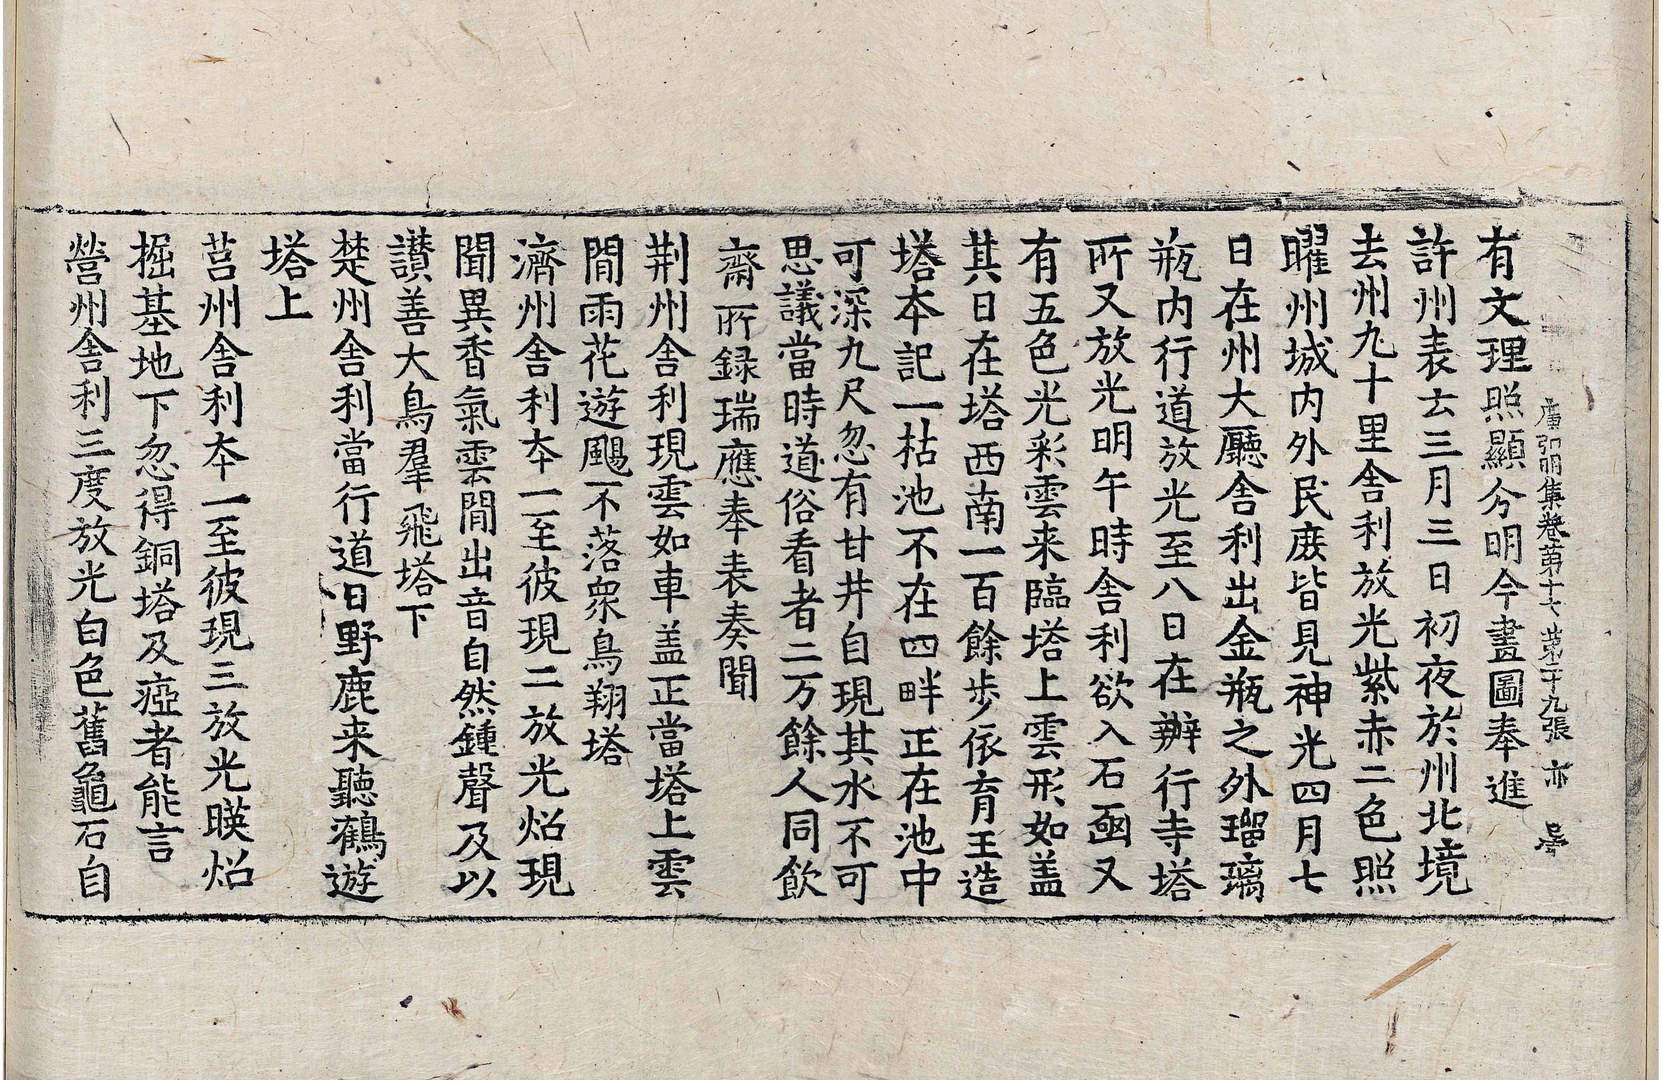 廣弘明集卷第十七 第二十九張 亦
有文理照顯分明今畫圖奉進
許州表去三月三日初夜於州北境
去州九十里舍利放光紫赤二色照
曜州城内外民庶皆見神光四月七
日在州大廳舍利出金瓶之外瑠璃
瓶内行道放光至八日在辦行寺塔
所又放光明午時舍利欲入石凾又
有五色光彩雲来臨塔上雲形如盖
其日在塔西南一百餘步依育王造
塔本記一枯池不在四畔正在池中
可深九尺忽有甘井自現其水不可
思議當時道俗看者二万餘人同飲
齋所録瑞應奉表奏聞
荆州舍利現雲如車盖正當塔上雲
間雨花遊颺不落衆鳥翔塔
濟州舍利夲一至彼現二放光炤現
聞異香氣雲間出音自然鍾聲及以
讃善大鳥羣飛塔下
楚州舍利當行道日野鹿来聽鶴遊
塔上
莒州舍利夲一至彼現三放光暎炤
掘基地下忽得銅塔及瘂者能言
營州舍利三度放光白色舊龜石自